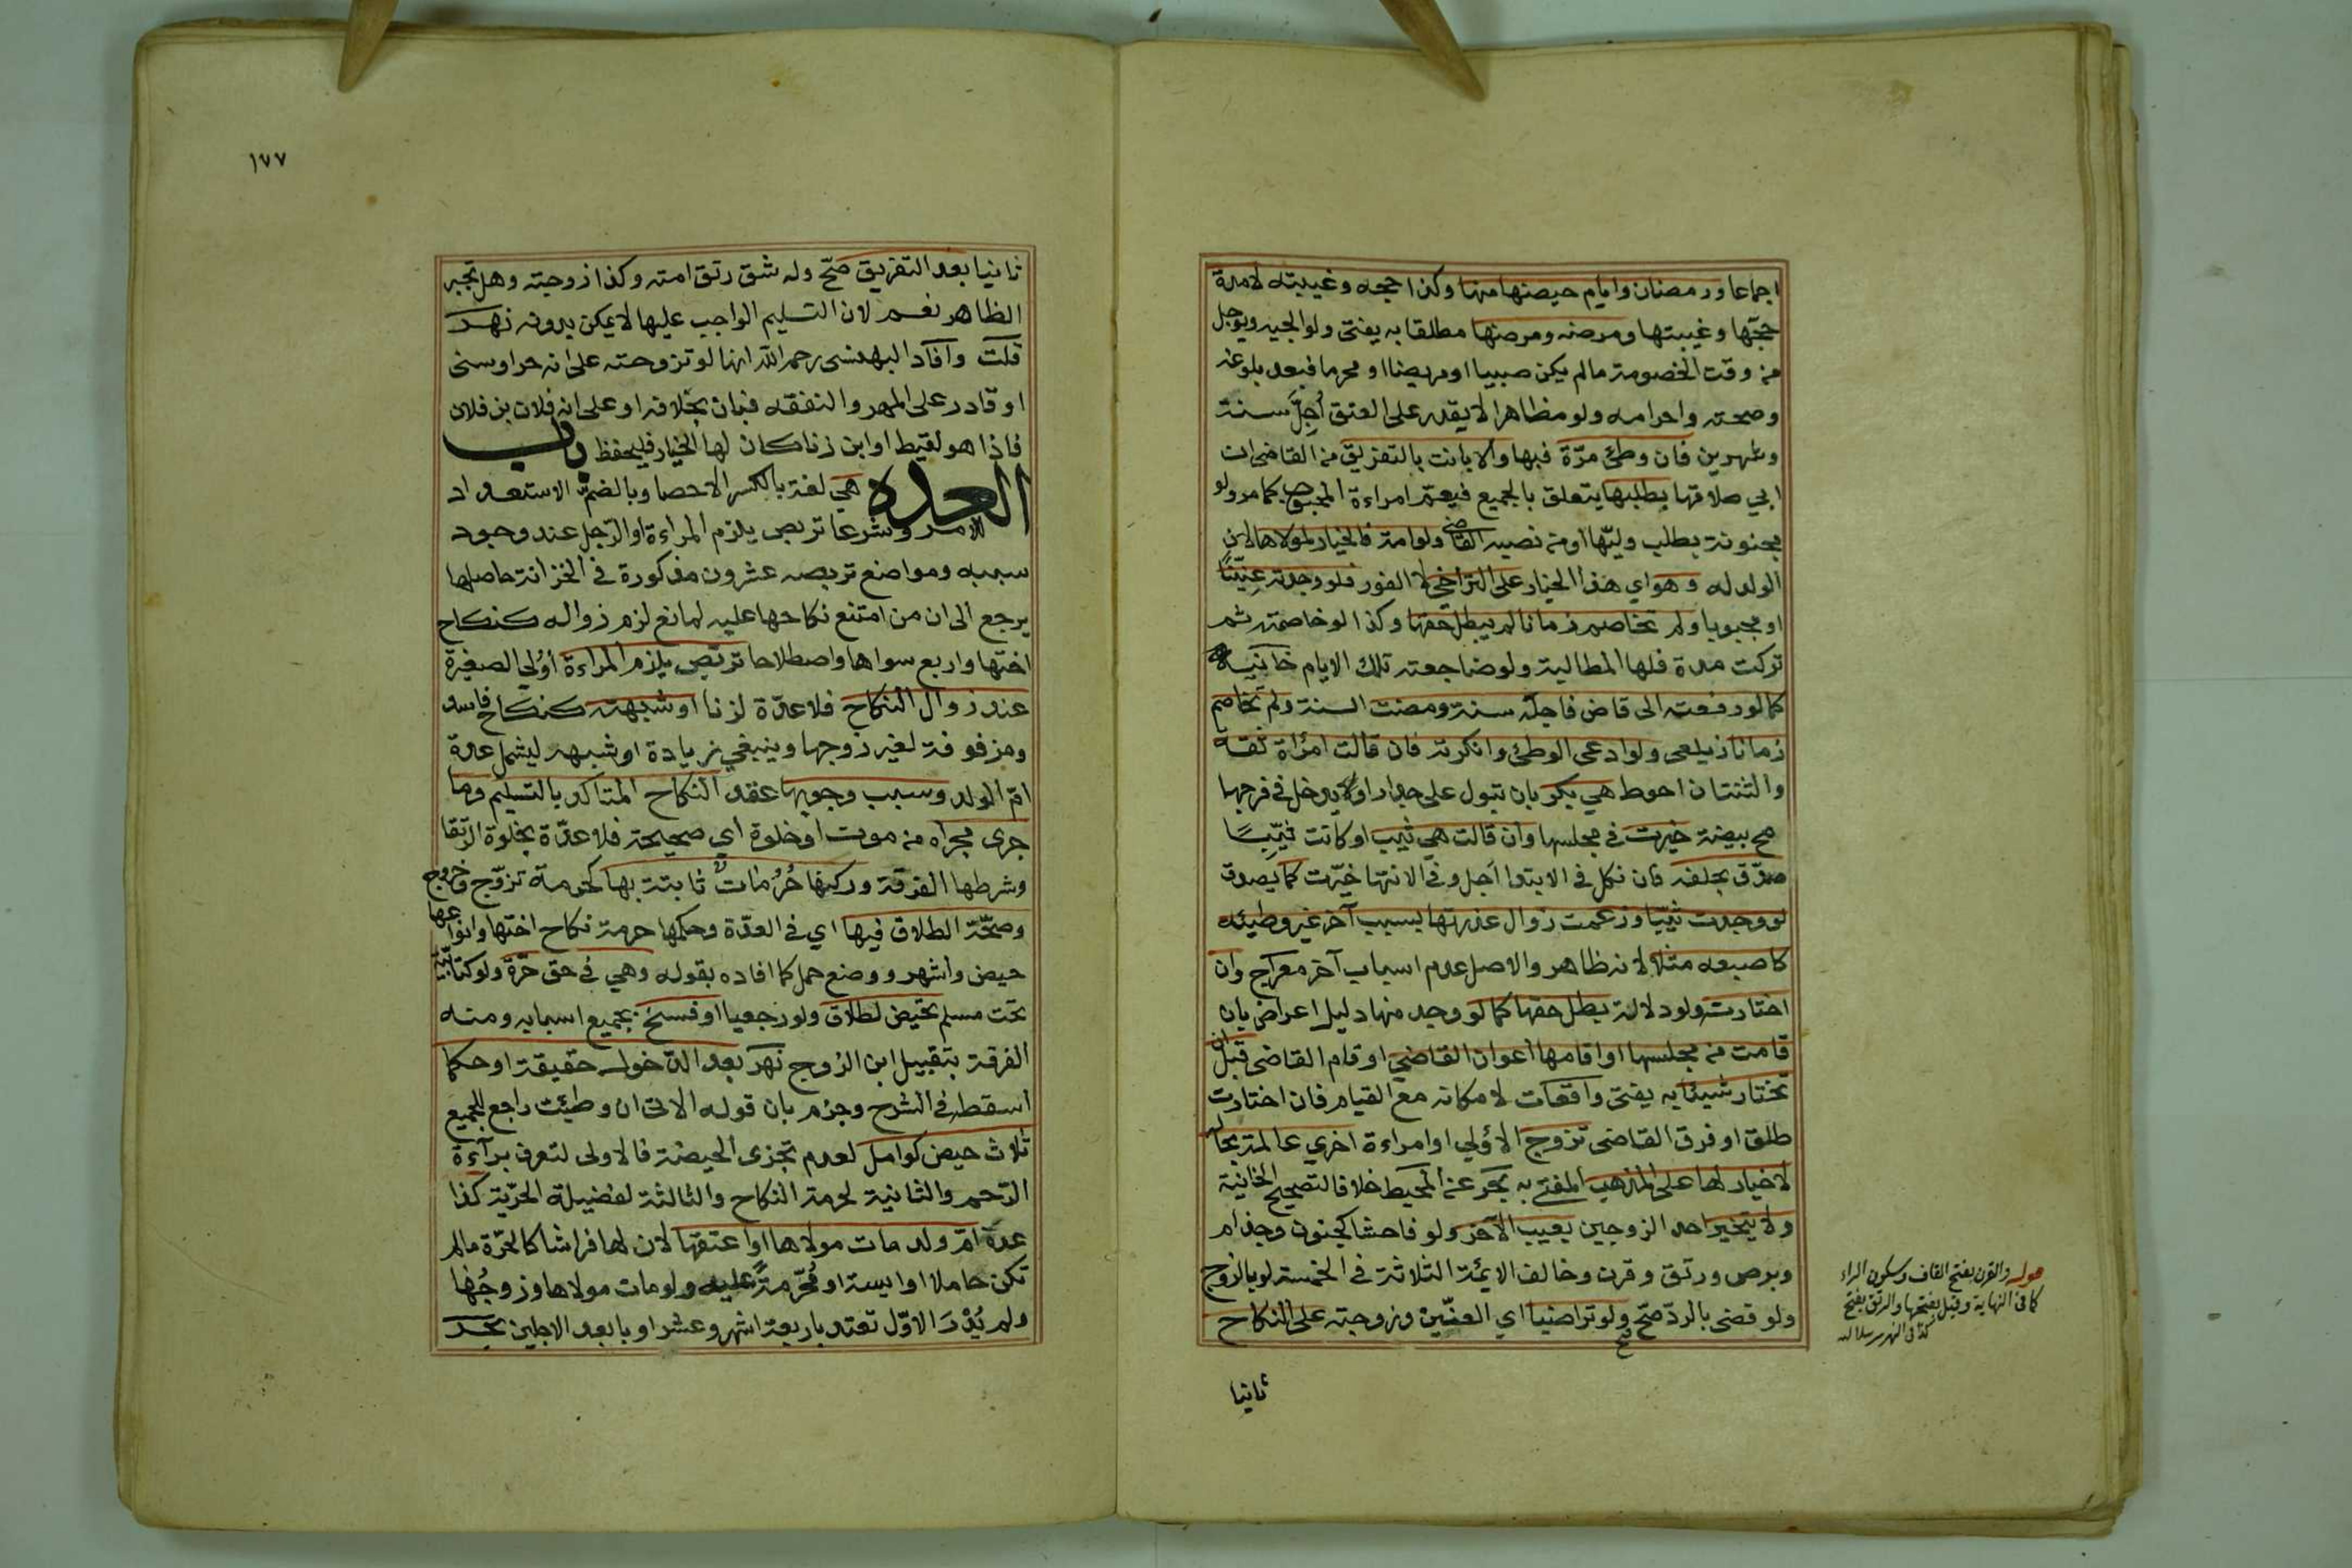 اجماعا ورمضان وايام حيضها منها وكذا حجه وغيبته لامدة
حجّها وغيبتها ومرضه ومرضها مطلقا به يفتى ولوالجيه ويؤجل
من وقت الخصومة مالم يكن صبيا او مريضا او محرما فبعد بلوغه
وصحته واحرامه ولو مظاهرا لا يقدر على العتق أجل سنة
وشهرين فان وطئ مرّة فبها والا بانت بالتفريق من القاضي ان
ابي طلاقها بطلبها يتعلق بالجميع فيعمّ امراءة المجبوب كما مر ولو
مجنونة بطلب وليّها او من نصبه القاضي ولو امة فالخيار لمولاها لان
الولد له وهو اي هذا الخيار على التراخي لا الفور فلو وجدته عنّينًا
او مجبوبا ولم تخاصم زمانا لم يبطل حقها وكذا لو خاصمته ثم
تركت مدة فلها المطالبة ولو ضاجعته تلك الايام خانيه
كما لو رفعته الى قاض فاجله سنة ومضت السنة ولم تخاصم
زمانا زيلعى ولو ادعى الوطئ وانكرته فان قالت امرأة ثقة
والثنتان احوط هي بكر بان تبول على جدار او يدخل في فرجها
مح بيضة خيرت في مجلسها وان قالت هي ثيب او كانت ثيّبًا
صدّق بحلفه فان نكل في الابتدا أجل وفي الانتها خيّرت كما يصدق
لو وجدت ثيّبا وزعمت زوال عذرتها بسبب آخر غير وطيئه
كاصبعه مثلا لانه ظاهر والاصل عدم اسباب آخر معراج وان
اختارته ولو دلالة بطل حقها كما لو وجد منها دليل اعراض بان
قامت من مجلسها او اقامها أعوان القاضي او قام القاضي قبل ان
تختار شيئا به يفتى واقعات لامكانه مع القيام فان اختارت
طلق او فرق القاضى تزوج الاؤلي او امراءة اخري عالمة بحاله
لا خيار لها على المذهب المفتي به بحر عن المحيط خلافا لتصحيح الخانية
ولا يتخير احد الزوجين بعيب الآخر ولو فاحشا كجنون وجذام
وبرص ورتق وقرن وخالف الايمة الثلاثة في الخمسة لو بالزوج
ولو قضى بالردّ صحّ ولو تراضيا اي العنّين وزوجته على النكاح
ثانيا
قوله والقرن بفتح القاف وسكون الراء
كما في النهاية وقيل بفتحها والرتق بفتح
كذا في النهر
١٧٧
ثانيا بعد التفريق صحّ وله شق رتق امته وكذا زوجته وهل تجبر
الظاهر نعم لان التسليم الواجب عليها لا يمكن بدونه نهر
قلت وافاد البهنسى رحمه الله انها لو تزوجته على انه حر او سنى
او قادر على المهر والنفقه فبان بخلافه او على انه فلان بن فلان
فاذا هو لقيط او ابن زنا كان لها الخيار فليحفظ باب
العدة هي لغة بالكسر الاحصا وبالضم الاستعداد
للامر وشرعا تربص يلزم المراءة او الرّجل عند وجود
سببه ومواضع تربصه عشرون مذكورة في الخزانة حاصلها
يرجع الى ان من امتنع نكاحها عليه لمانع لزم زواله كنكاح
اختها واربع سواها واصطلاحا تربّص يلزم المراءة اولي الصغيرة
عند زوال النكاح فلا عدّة لزنا او شبهته كنكاح فاسد
ومزفوفة لغير زوجها وينبغي زيادة او شبهه ليشمل عدة
امّ الولد وسبب وجوبها عقد النكاح المتاكد بالتسليم وما
جرى مجراه من موت او خلوة اي صحيحة فلا عدّة بخلوة الرتقا
وشرطها الفرقة وركنها حُرُمات ثابتة بها كحرمة تزوّج وخروج
وصحّة الطلاق فيها اي في العدّة وحكمها حرمة نكاح اختها وانواعها
حيض واشهر ووضع حمل كما افاده بقوله وهي في حق حرّة ولو كتابيّة
تحت مسلم تحيض لطلاق ولو رجعيا او فسخ بجميع اسبابه ومنه
الفرقة بتقبيل ابن الزوج نهر بعد الدّخول حقيقة او حكما
اسقطه في الشرح وجزم بان قوله الاتى ان وطئت راجع للجميع
ثلاث حيض كوامل لعدم تجزى الحيضة فالاولى لتعرف برآءة
الرّحم والثانية لحرمة النكاح والثالثة لفضيلة الحرّية كذا
عدة امّ ولد مات مولاها او اعتقها لان لها فراشا كالحرّة مالم
تكن حاملا او ايسة او مُحرّمةً عليه ولو مات مولاها وزوجُها
ولم يُدْرَ الاوّل تعتد باربعة اشهر وعشر او بابعد الاجلين بحر